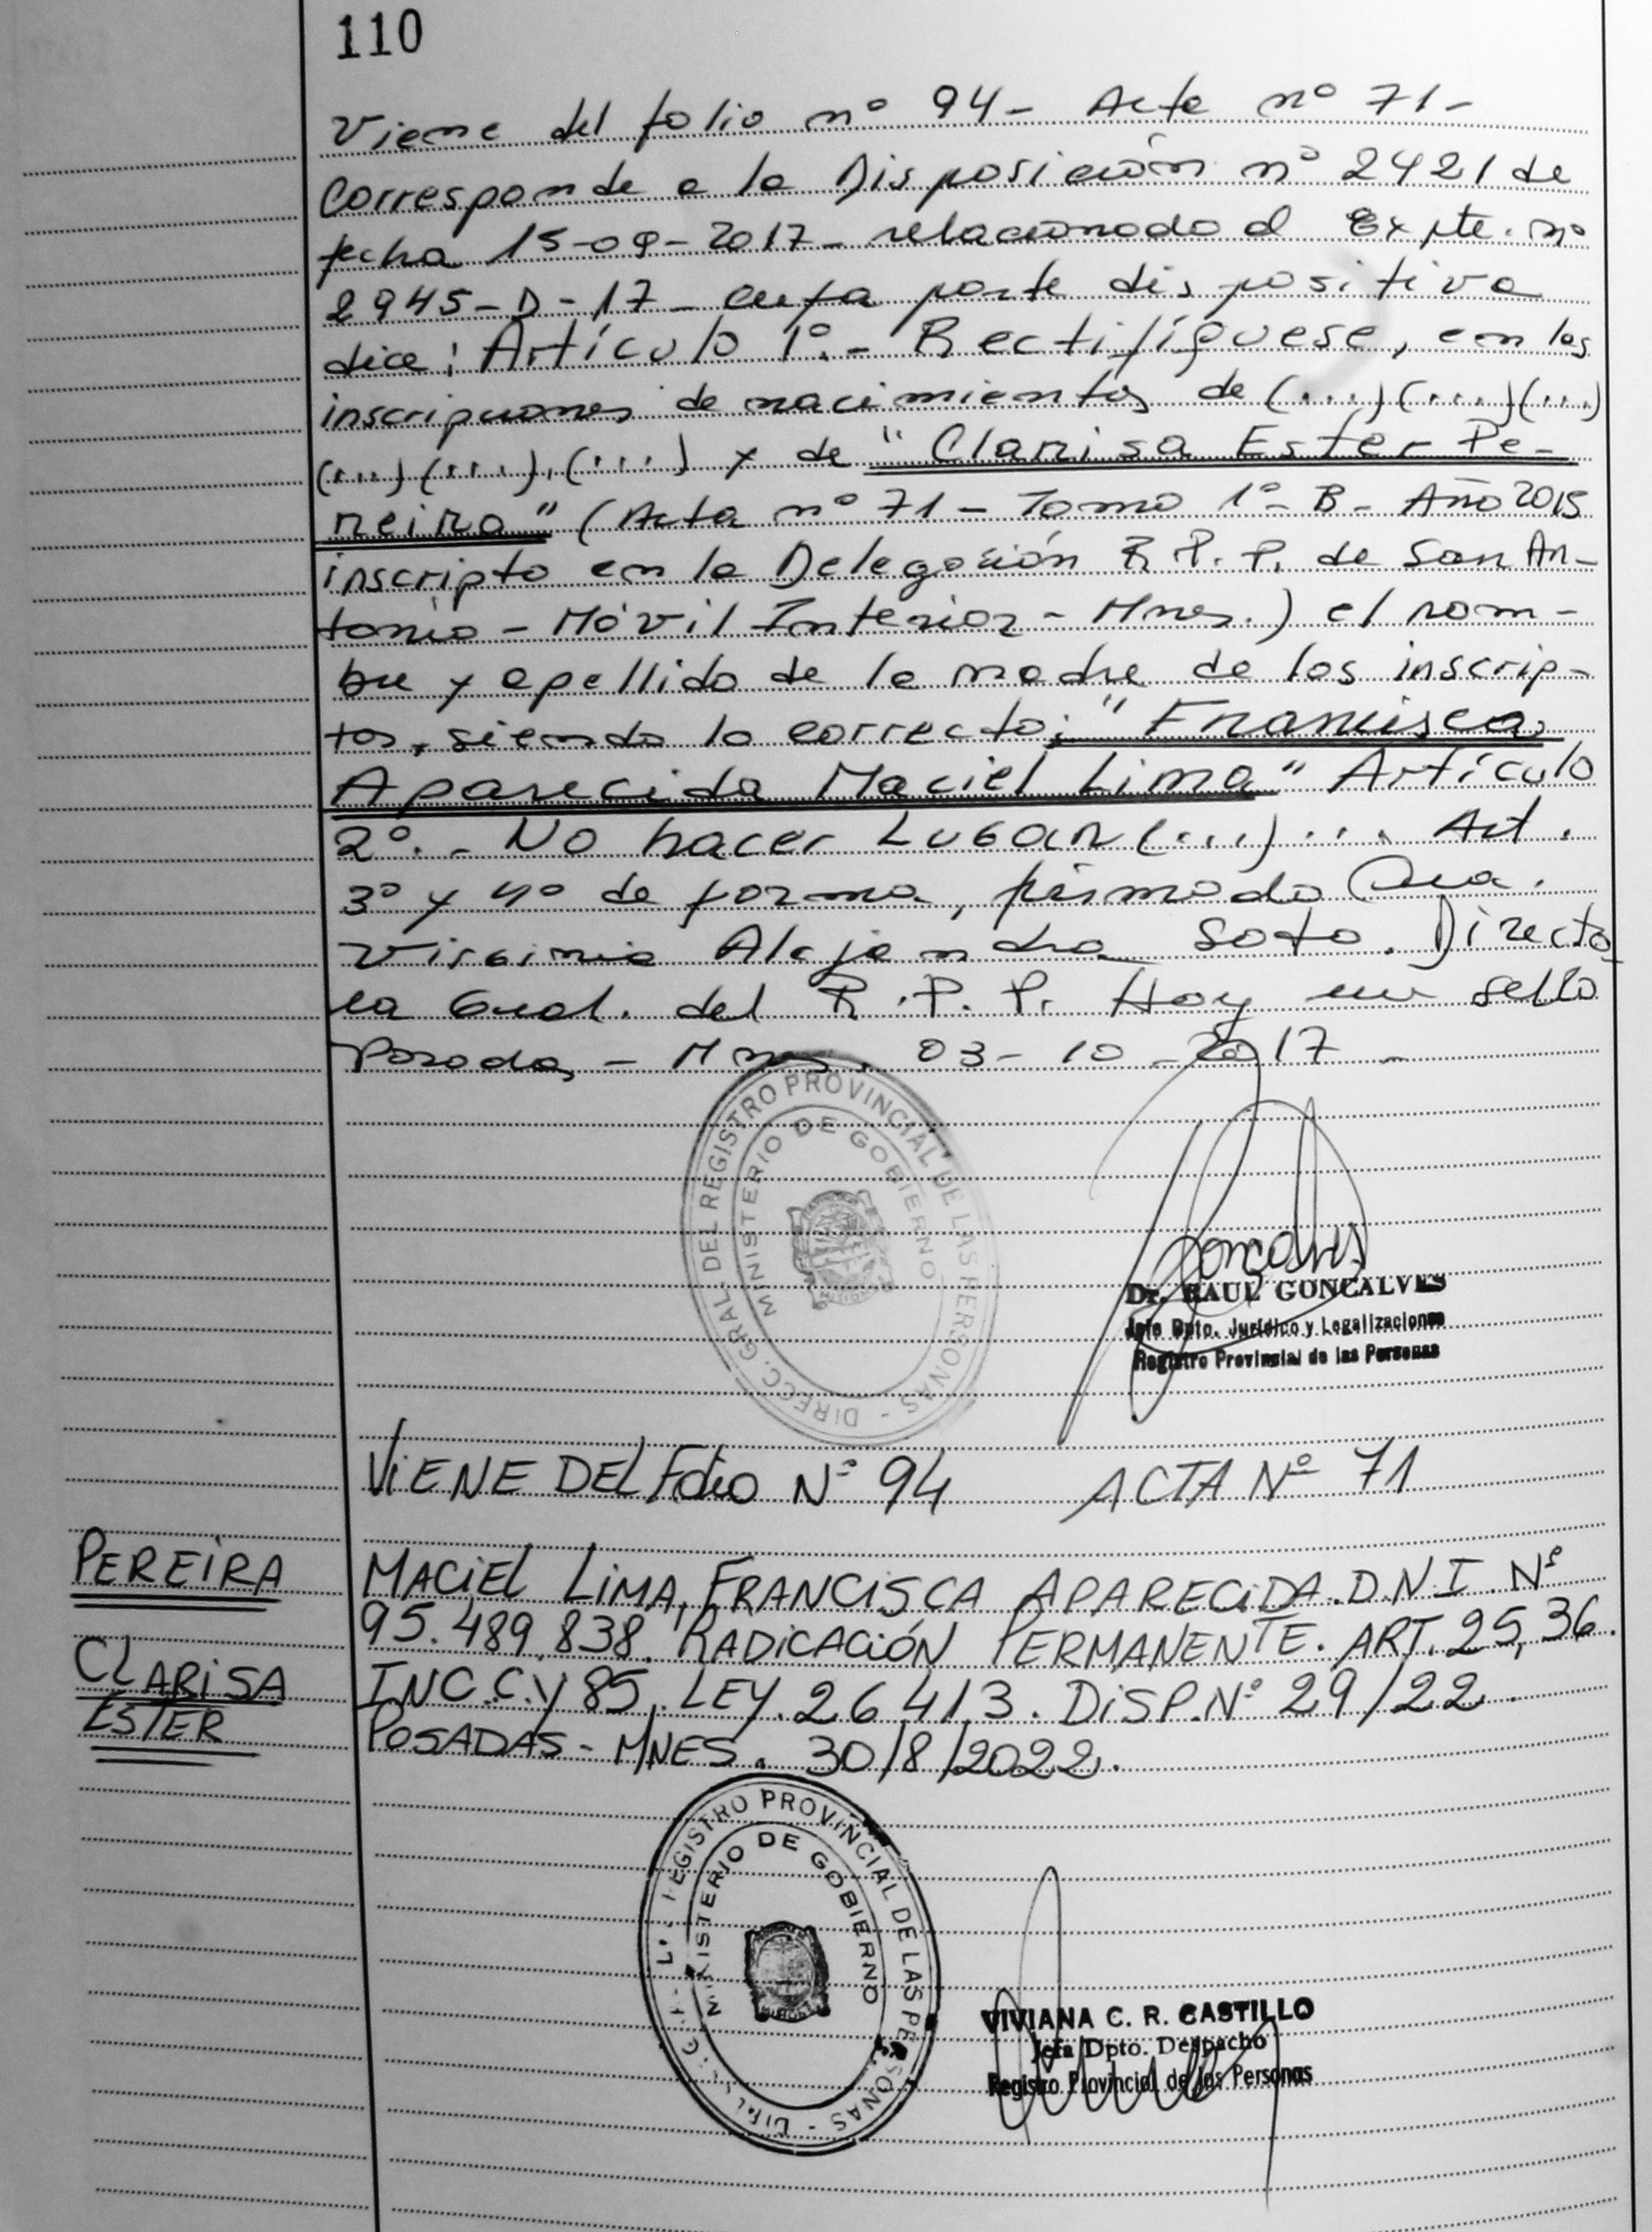 110
Viene del folio nº 94- Acta nº 71-
Corresponde a la Disposición nº 2421 de
fecha 15-09-2017- relacionado al Expte. nº
2945-D-17- cuya parte dispositiva
dice: Artículo 1º.- Rectifíquese, en las
inscripciones de nacimientos de (...) (...) (...)
(...) (...), (...) y de "Clarisa Ester Pe-
reira" (Acta nº 71- Tomo 1º- B- Año 2015
inscripto en la Delegación R.P.P. de San An-
tonio - Móvil Interior - Mnes.) el nom-
bre y apellido de la madre de los inscrip-
tos, siendo lo correcto: "Francisca
Aparecida Maciel Lima" Artículo
2º.- No hacer Lugar (...)... Art.
3º y 4º de forma, firmado
Virginia Alejandra Soto. Directo
ra Gral. del R.P.P. Hay un sello
Posadas - Mnes. 03-10-2017-
DIRECC. GRAL. DEL REGISTRO PROVINCIAL DE LAS PERSONAS -
MINISTERIO DE GOBIERNO
MISIONES
Goncalves
Dr. RAUL GONCALVES
Jefe Dpto. Jurídico y Legalizaciones
Registro Provincial de las Personas
ViENE DEL Folio Nº 94 ACTA Nº 71
PEREiRA
CLARiSA
ESTER
MACiEL LiMA, FRANCiSCA APARECiDA. D.N.I. Nº
95.489.838. RADICACiÓN PERMANENTE. ART. 25, 36.
INC. C. y 85. LEY. 26413. DiSP. Nº 29/22.
POSADAS - MNES. 30/8/2022.
REGISTRO PROVINCIAL DE LAS PERSONAS -
MINISTERIO DE GOBIERNO
VIVIANA C. R. CASTILLO
Jefa Dpto. Despacho
Registro Provincial de las Personas